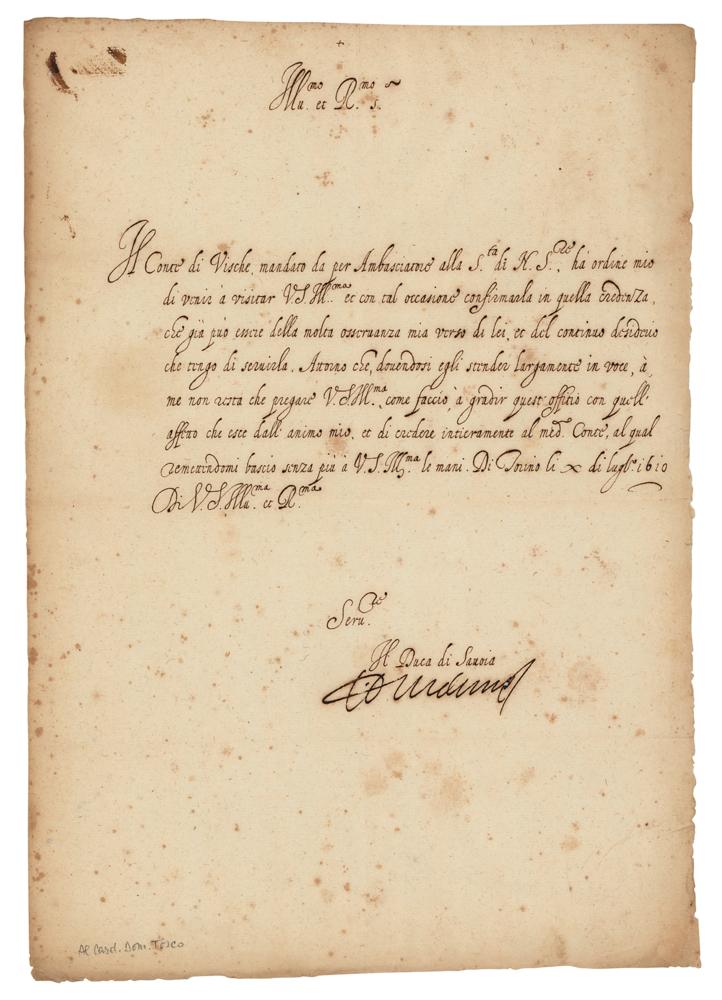 +
Ill.mo et R.mo S.
Il Conte di Vische, mandato da per Ambasciatore alla S.ta di N. S.re, hà ordine mio
di venir à visitar V. S. Ill.ma et con tal occasione confirmarla in quella credenza,
che già può essere della molta osseruanza mia verso di lei, et del continuo desiderio
che tengo di seruirla. Attorno che, douendosi egli stender largamente in voce, à
me non resta che pregare V. S. Ill.ma come faccio, à gradir quest'offitio con quell'
affetto che esce dall'animo mio, et di credere intieramente al med.o Conte, al qual
remettendomi bascio senza più à V. S. Ill.ma le mani. Di Torino li x di lugl.o 1610
Di V. S. Illu.ma et R.ma
Seru.re
Il Duca di Sauoia
Al Card. Dom. Tosco